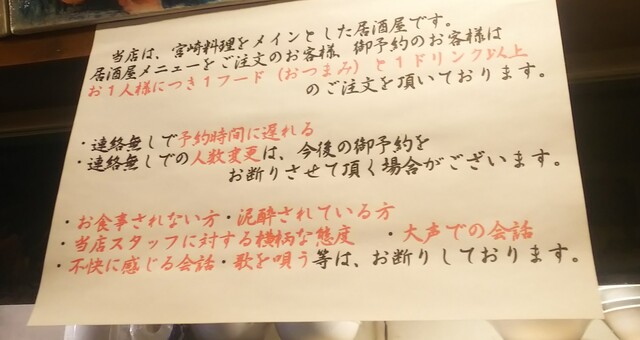 当店は、宮崎料理をメインとした居酒屋です。
居酒屋メニューをご注文のお客様、御予約のお客様は
お1人様につき1フード（おつまみ）と1ドリンク以上
のご注文を頂いております。
・連絡無しで予約時間に遅れる
・連絡無しでの人数変更は、今後の御予約を
お断りさせて頂く場合がございます。
・お食事されない方・泥酔されている方
・当店スタッフに対する横柄な態度　・大声での会話
・不快に感じる会話・歌を唄う等は、お断りしております。